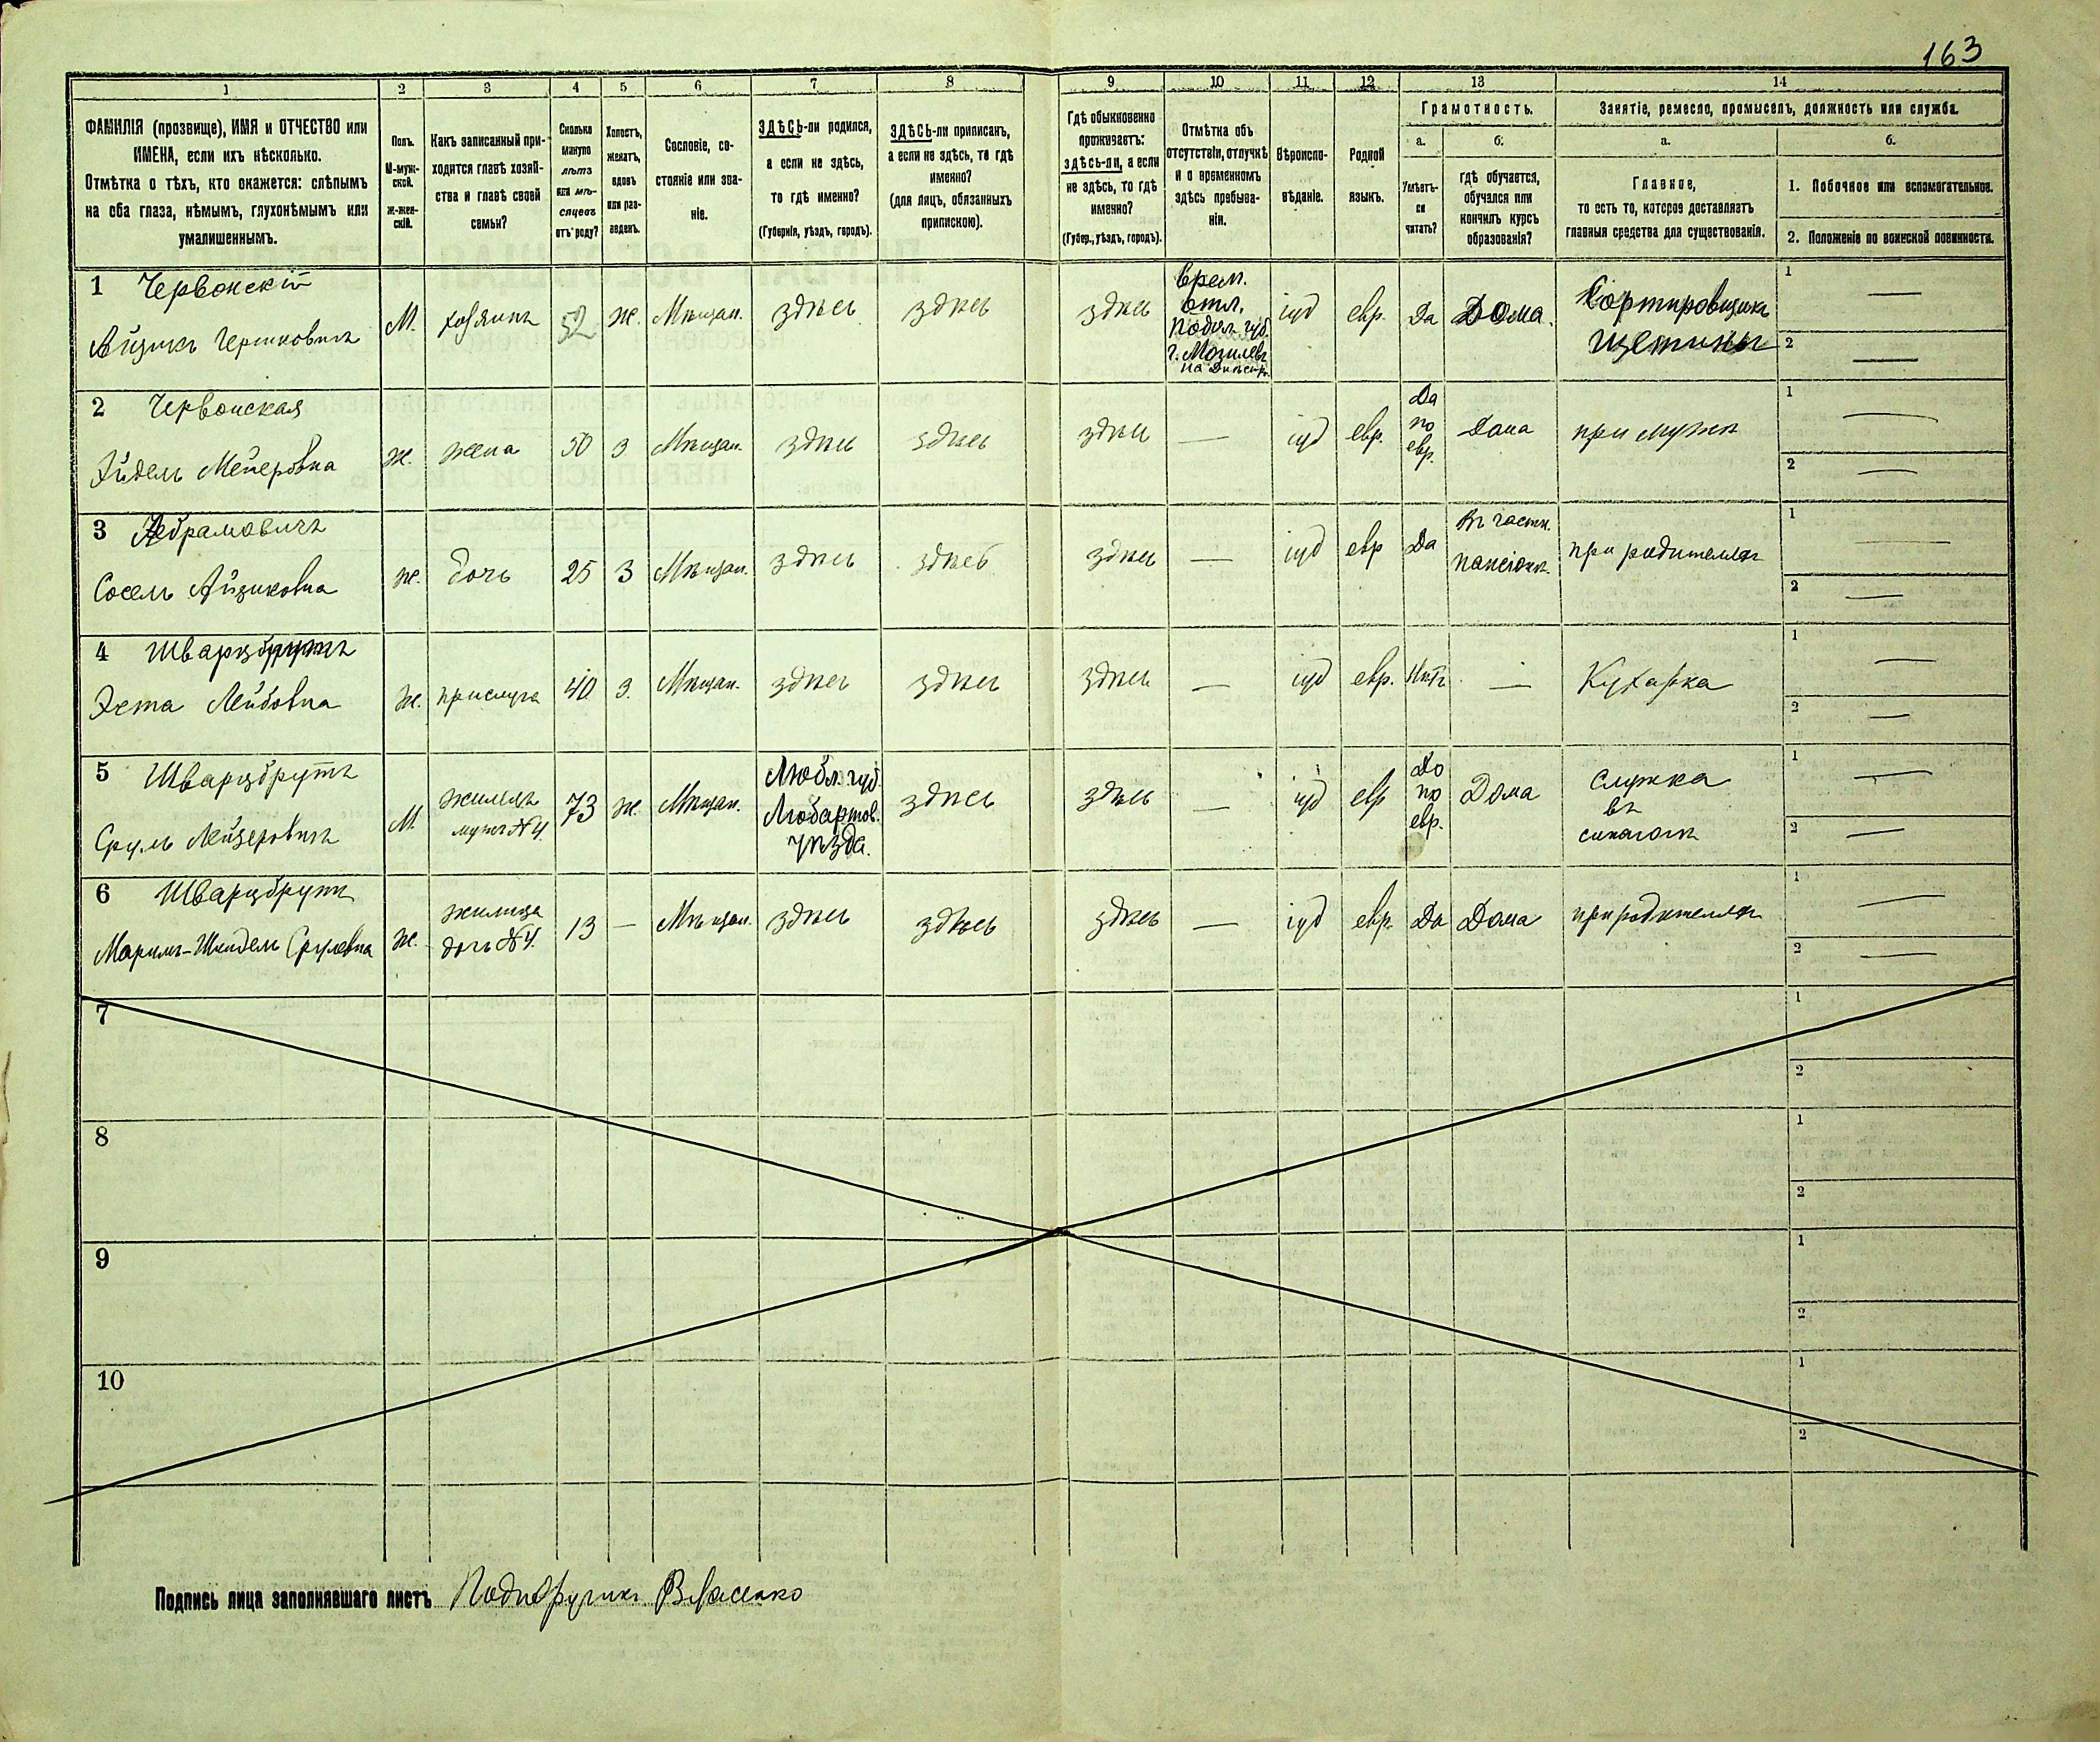 163
1 2 3 4 5 6 7 8 9 10 11 12 13 14
ФАМИЛІЯ (прозвище), ИМЯ и ОТЧЕСТВО или
ИМЕНА, если ихъ нѣсколько.
Отмѣтка о тѣхъ, кто окажется: слѣпымъ
на оба глаза, нѣмымъ, глухонѣмымъ или
умалишеннымъ.
Полъ.
М-муж-
ской.
Ж-жен-
скій.
Какъ записанный при-
ходится главѣ хозяй-
ства и главѣ своей
семьи?
Сколько
минуло
лѣтъ
или мѣ-
сяцевъ
отъ роду?
Холостъ,
женатъ,
вдовъ
или раз-
веденъ.
Сословіе, со-
стояніе или зва-
ніе.
ЗДѢСЬ-ли родился,
а если не здѣсь,
то гдѣ именно?
(Губернія, уѣздъ, городъ).
ЗДѢСЬ-ли приписанъ,
а если не здѣсь, то гдѣ
именно?
(для лицъ, обязанныхъ
припискою).
Гдѣ обыкновенно
проживаетъ:
здѣсь-ли, а если
не здѣсь, то гдѣ
именно?
(Губер., уѣздъ, городъ).
Отмѣтка объ
отсутствіи, отлучкѣ
и о временномъ
здѣсь пребыва-
ніи.
Вѣроиспо-
вѣданіе.
Родной
языкъ.
Грамотность.
а.
Умѣетъ-
ли
читать?
б.
гдѣ обучается,
обучался или
кончилъ курсъ
образованія?
Занятіе, ремесло, промыселъ, должность или служба.
а.
Главное,
то есть то, которое доставляетъ
главныя средства для существованія.
б.
1. Побочное или вспомогательное.
2. Положеніе по воинской повинности.
1 Червонскій
Айзикъ
М.
хозяинъ
52
ж.
Мѣщан.
здѣсь
здѣсь
здѣсь
Врем.
отл.
Подол. губ.
г. Могилевъ
на Днѣстр.
іуд
евр.
Да
Дома.
Сортировщикъ
щетины
1 —
2 —
2 Червонская
Эйдель Мейеровна
ж.
жена
50
з
Мѣщан.
здѣсь
здѣсь
здѣсь
—
іуд
евр.
Да
по
евр.
Дома
при мужѣ
1 —
2 —
3 Абрамовичъ
Сосель Айзиковна
ж.
дочь
25
З
Мѣщан.
здѣсь
здѣсь
здѣсь
—
іуд
евр
Да
Въ частн.
пансіонѣ.
при родителяхъ
1 —
2 —
4 Шварцбрутъ
Эста Лейбовна
ж.
прислуга
40
з.
Мѣщан.
здѣсь
здѣсь
здѣсь
—
іуд
евр.
Нѣтъ
—
Кухарка
1 —
2 —
5 Шварцбрутъ
Сруль Лейзеровичъ
М.
жилецъ
мужъ №4.
73
ж.
Мѣщан.
Любл. губ.
Любартов.
уѣзда.
здѣсь
здѣсь
—
іуд
евр
Да
по
евр.
Дома
Служка
въ
синагогѣ
1 —
2 —
6 Шварцбрутъ
Срулевна
ж.
жилица
дочь №4.
13
—
Мѣщан.
здѣсь
здѣсь
здѣсь
—
іуд
евр.
Да
Дома
при родителяхъ
1 —
2 —
7
1
2
8
1
2
9
1
2
10
1
2
Подпись лица заполнявшаго листъ Подпоручикъ Власенко